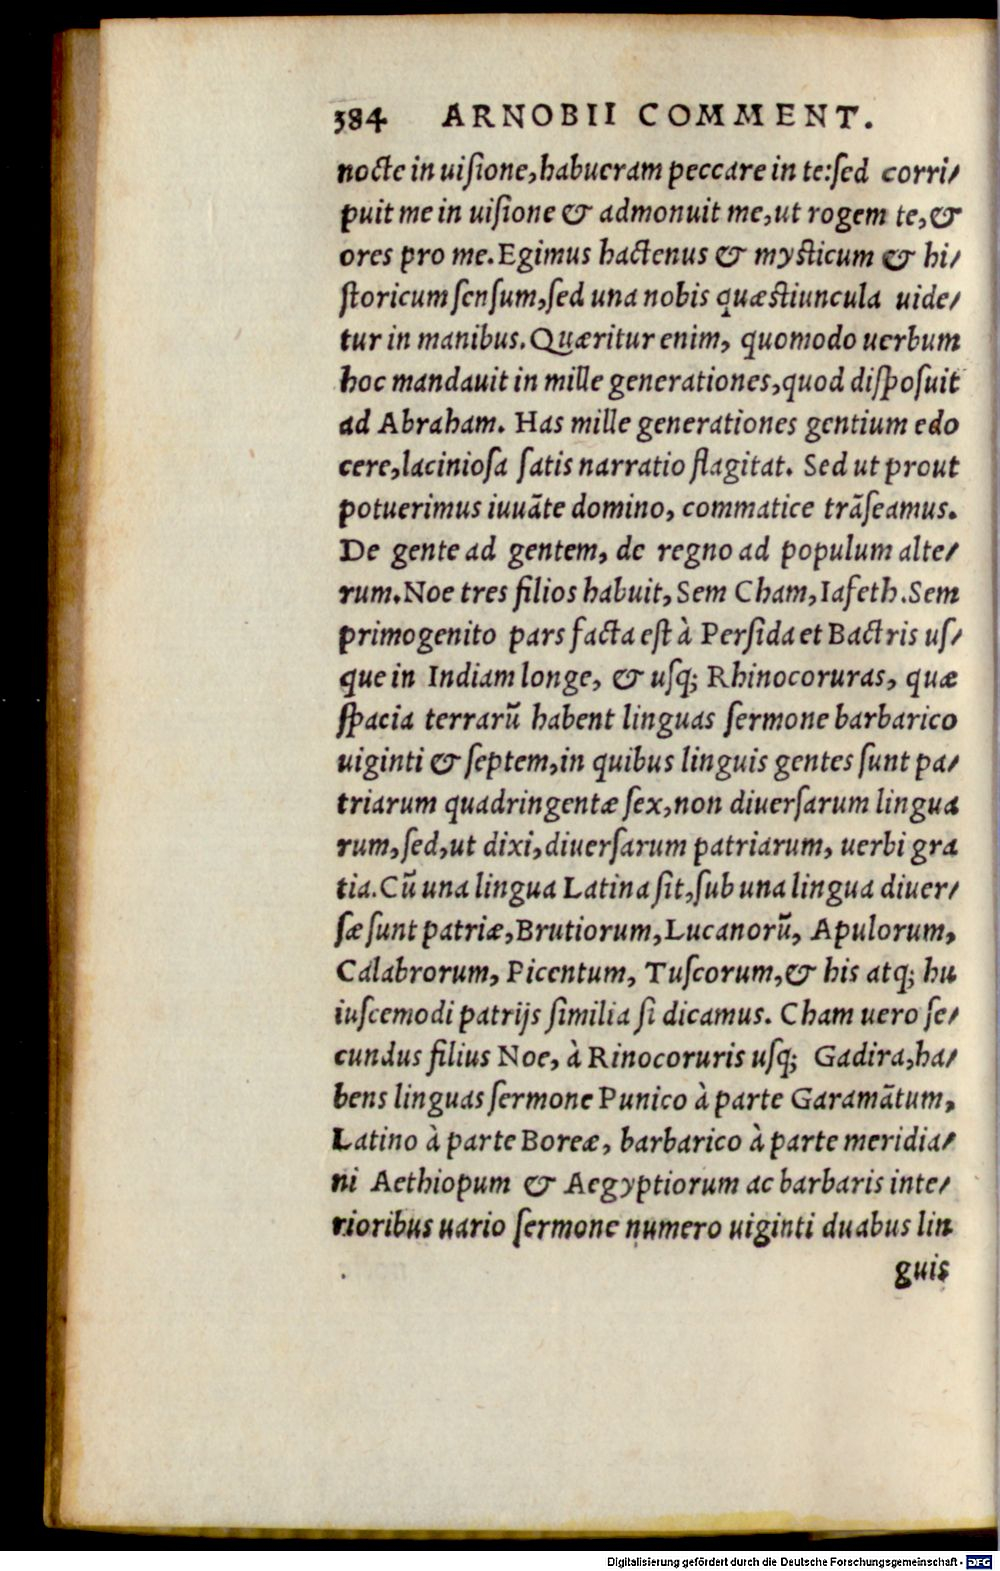 384 ARNOBII COMMENT.
nocte in uiſione, habueram peccare in te: ſed corri/
puit me in uiſione & admonuit me, ut rogem te, &
ores pro me. Egimus hactenus & myſticum & hi/
ſtoricum ſenſum, ſed una nobis quæſtiuncula uide/
tur in manibus. Quæritur enim, quomodo uerbum
hoc mandauit in mille generationes, quod diſpoſuit
ad Abraham. Has mille generationes gentium edo
cere, lacinioſa ſatis narratio flagitat. Sed ut prout
potuerimus iuuāte domino, commatice trāſeamus.
De gente ad gentem, de regno ad populum alte/
rum. Noe tres filios habuit, Sem Cham, Iafeth. Sem
primogenito pars facta eſt à Perſida et Bactris uſ/
que in Indiam longe, & uſq; Rhinocoruras, quæ
ſpacia terrarū habent linguas ſermone barbarico
uiginti & ſeptem, in quibus linguis gentes ſunt pa/
triarum quadringentæ ſex, non diuerſarum lingua
rum, ſed, ut dixi, diuerſarum patriarum, uerbi gra
tia. Cū una lingua Latina ſit, ſub una lingua diuer/
ſæ ſunt patriæ, Brutiorum, Lucanorū, Apulorum,
Calabrorum, Picentum, Tuſcorum, & his atq; hu
iuſcemodi patrijs ſimilia ſi dicamus. Cham uero ſe/
cundus filius Noe, à Rinocoruris uſq; Gadira, ha/
bens linguas ſermone Punico à parte Garamātum,
Latino à parte Boreæ, barbarico à parte meridia/
ni Aethiopum & Aegyptiorum ac barbaris inte/
rioribus uario ſermone numero uiginti duabus lin
guis
Digitalisierung gefördert durch die Deutsche Forschungsgemeinschaft - DFG